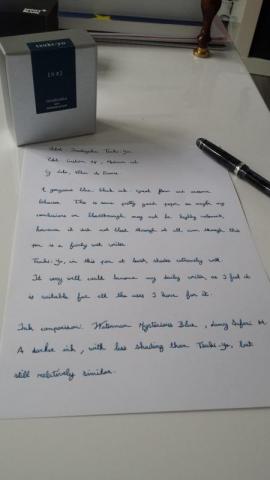 tsuki-yo
Iroshizuku Tsuki-yo
Custom 74, Medium nib
A gorgeous blue black ink. Great flow and
This is some pretty good paper so maybe my
conclusions on bleedthrough may not be highly
because it did not bleed through at all even though this
pen is a fairly wet writer.
Tsuki-Yo, in this pen at least, shades extremely well.
It very well could become my daily writer as I feel it
is suitable for all the uses I have for it.
Ink comparison: Waterman Mysterious Blue, Lamy Safari M.
A darker ink, with less shading than Tsuki-Yo, but
still relatively similar.